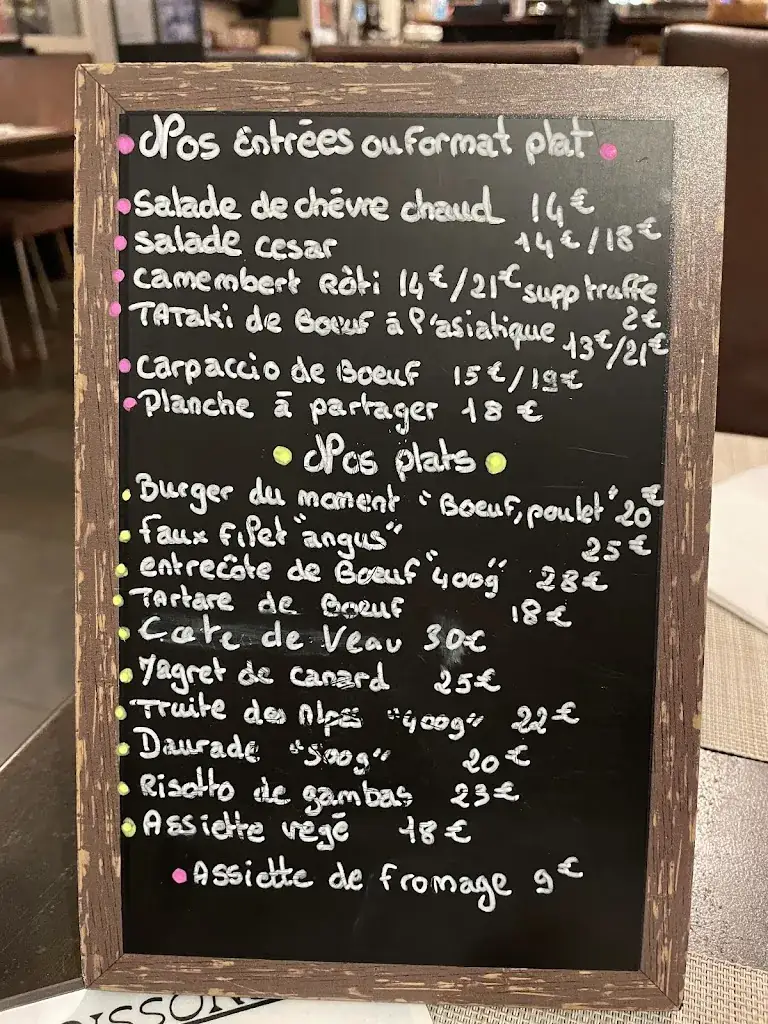 Nos Entrées ou format plat
Salade de chèvre chaud 14€
Salade cesar 14€/18€
camembert Rôti 14€/21€ supp truffe 2€
TATaki de Boeuf à l'asiatique 13€/21€
Carpaccio de Boeuf 15€/19€
Planche à partager 18€
Nos plats
Burger du moment "Boeuf, poulet" 20€
faux filet "angus" 25€
entrecôte de Boeuf "400g" 28€
TArtare de Boeuf 18€
Cote de Veau 30€
Magret de canard 25€
Truite des Alpes "400g" 22€
Daurade "500g" 20€
Risotto de gambas 23€
Assiette végé 18€
Assiette de fromage 9€